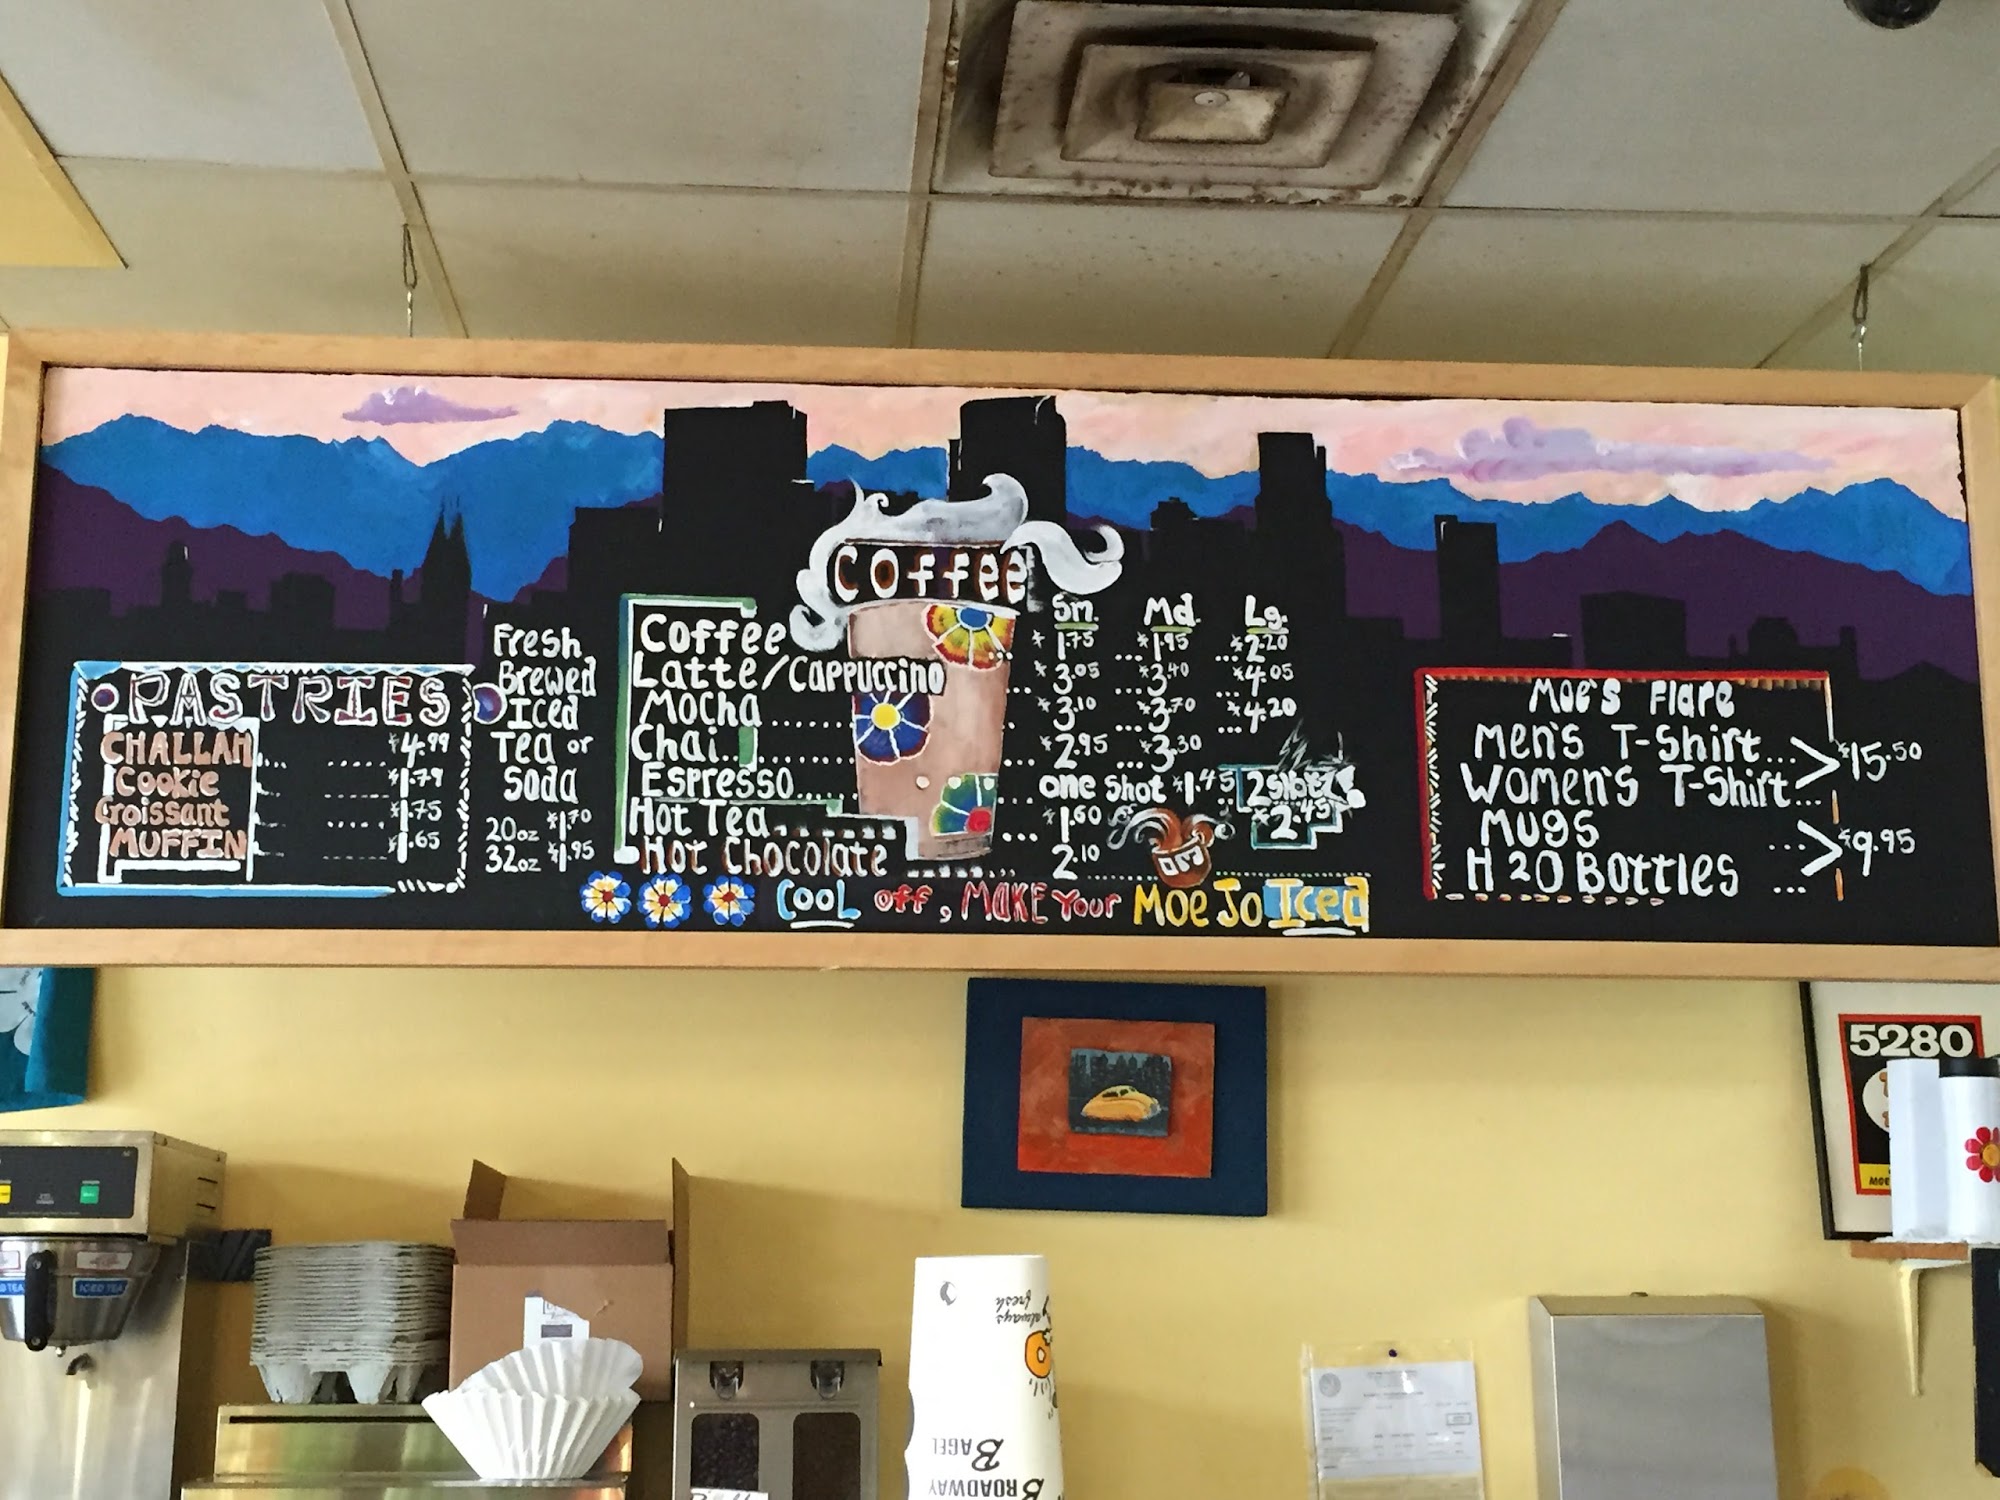 PASTRIES
CHALLAH.... ...... $4.99
Cookie ...... $1.79
Croissant ...... $1.75
MUFFIN ...... $1.65
Fresh
Brewed
Iced
Tea or
Soda
20oz $1.70
32oz $1.95
COFFEE
Sm. Md. Lg.
Coffee ... $1.75 ... $1.95 ... $2.20
Latte/Cappuccino ... $3.05 ... $3.40 ... $4.05
Mocha ... $3.10 ... $3.70 ... $4.20
Chai ... $2.95 ... $3.30
Espresso ... one Shot $1.45 2 shots $2.45
Hot Tea ... $1.60
Hot Chocolate ... 2.10
COOL off, MAKE Your MOE JO Iced
Moe's Flare
Men's T-Shirt...
Women's T-Shirt... > $15.50
Mugs ...
H20 Bottles ... > $9.95
5280
MOE
ICED TEA
ICED TEA
always fresh
BROADWAY
BAGEL